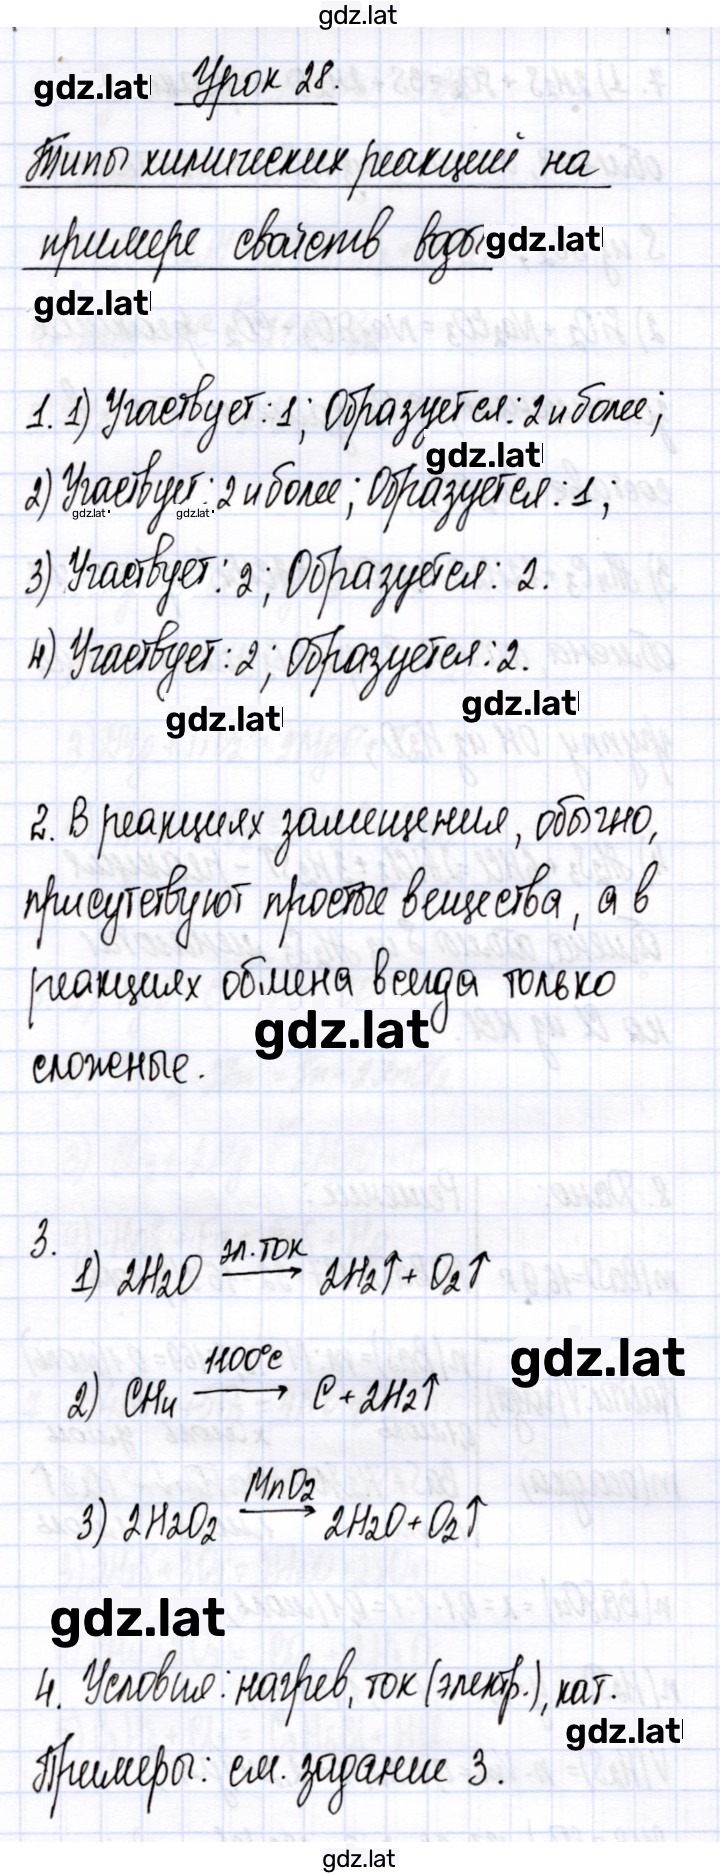 gdz.lat
gdz.lat Урок 28.
Типы химических реакций на
примере свойств воды gdz.lat
gdz.lat
1. 1) Участвует: 1; Образуется: 2 и более;
gdz.lat
2) Участвует: 2 и более; Образуется: 1;
gdz.lat gdz.lat
3) Участвует: 2; Образуется: 2.
4) Участвует: 2; Образуется: 2.
gdz.lat gdz.lat
2. В реакциях замещения, обычно,
присутствуют простые вещества, а в
реакциях обмена всегда только
gdz.lat
сложеные.
3.
1) 2H2O —эл. ток→ 2H2↑ + O2↑
gdz.lat
2) CH4 —1100°C→ C + 2H2↑
3) 2H2O2 —MnO2→ 2H2O + O2↑
gdz.lat
4. Условия: нагрев, ток (электр.), кат.
gdz.lat
Примеры: см. задание 3.
gdz.lat